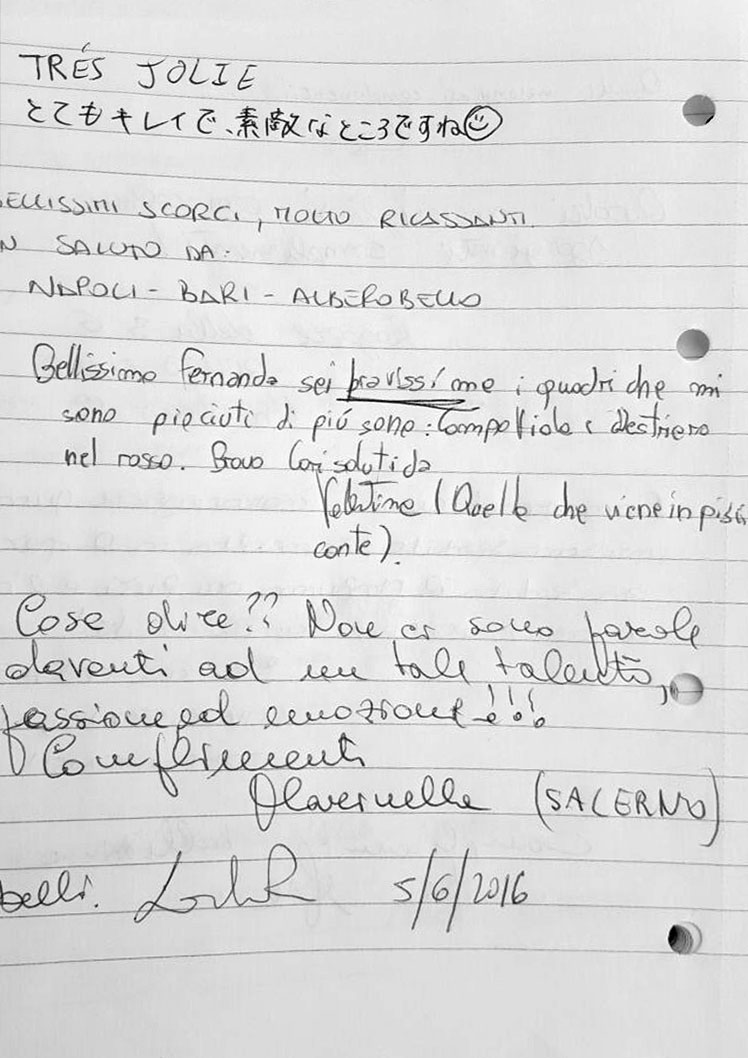 TRÉS JOLIE
とてもキレイで、素敵なところですね☺
ELLISSIMI SCORCI, MOLTO RILASSANTI.
N SALUTO DA:
NAPOLI - BARI - ALBEROBELLO
Bellissimo Fernanda sei bravissima i quadri che mi
sono piaciuti di più sono: Campo Viola e destriero
nel rosso. Brava Cari saluti da
Valentina (Quella che viene in
conte).
Cosa dire?? Non ci sono parole
davanti ad un tale talento,
passione ed emozione!!!
Complimenti
(SALERNO)
belli. 5/6/2016